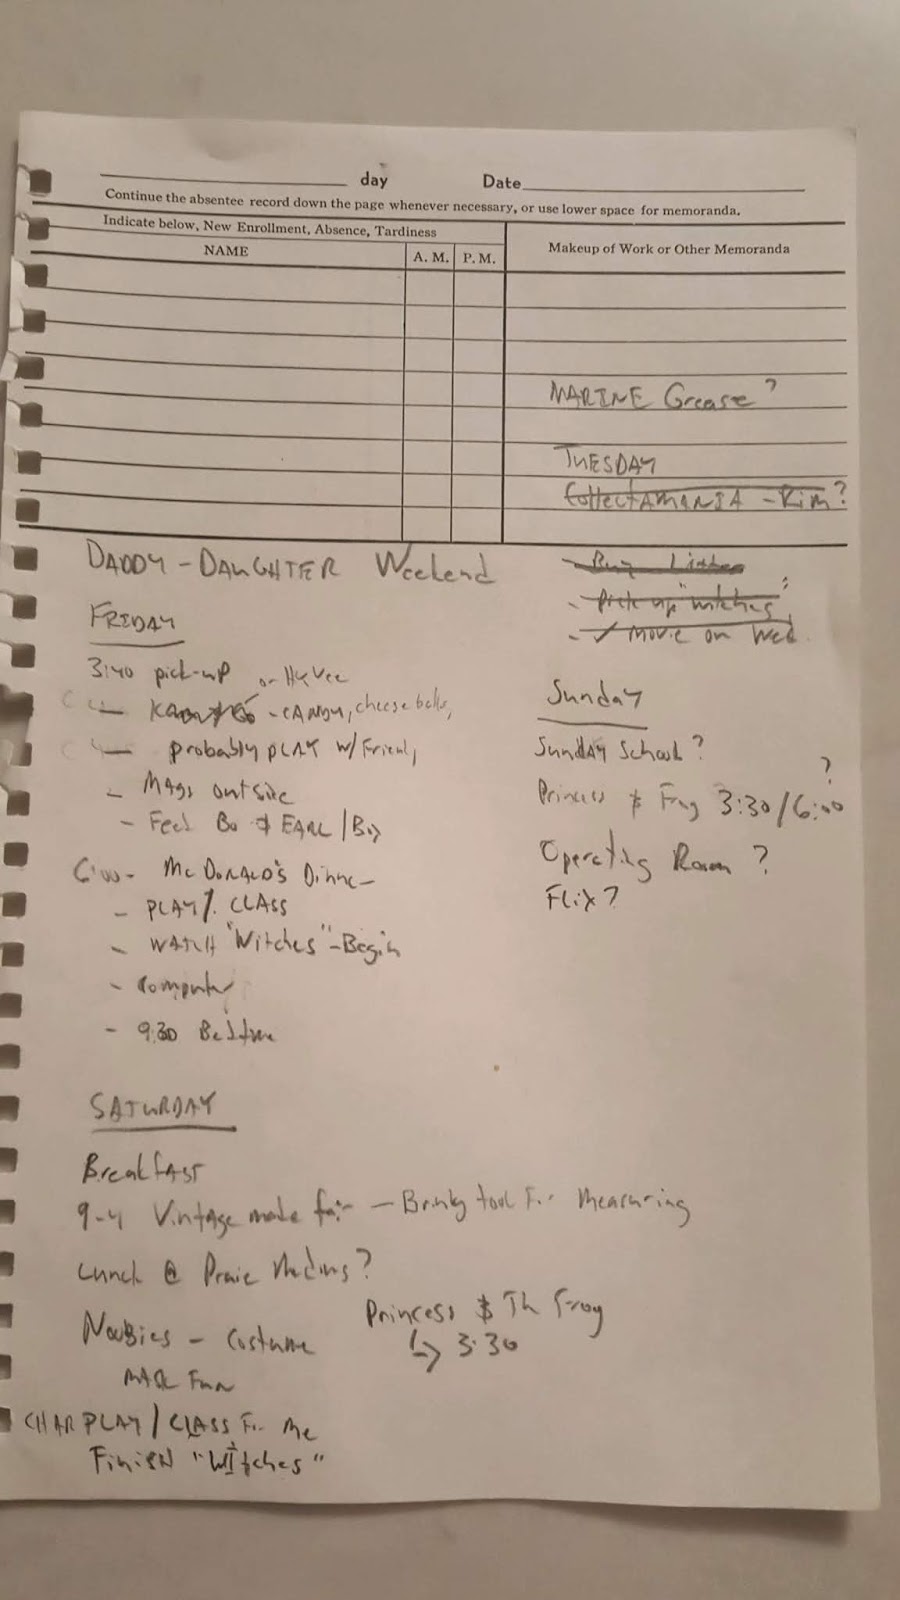 day Date
Continue the absentee record down the page whenever necessary, or use lower space for memoranda.
Indicate below, New Enrollment, Absence, Tardiness
NAME A. M. P. M. Makeup of Work or Other Memoranda
MARINE Grease?
TUESDAY
CollectAMANIA - Kim?
- Pick up "witches"
- ✓ movie on Wed.
DADDY - DAUGHTER Weekend
FRIDAY
3:40 pick-up or HyVee
- CANDY, cheese balls,
- probably PLAY w/ Friend,
- MAGS outside
- Feed Bo & EARL /
6:00 - McDONALD'S Dinne
- PLAY / CLASS
- WATCH "Witches" - Begin
- Computer
- 9:30 Bedtime
SATURDAY
BreakfAST
9-4 Vintage made fair - Bring tool For measuring
Lunch @
Costume
CHAR PLAY / CLASS For Me
Finish "Witches"
Princess & Th Frog
↳ 3:30
Sunday
SUNDAY School?
Princess & Frog 3:30/6:00 ?
Operating Room?
Flix?